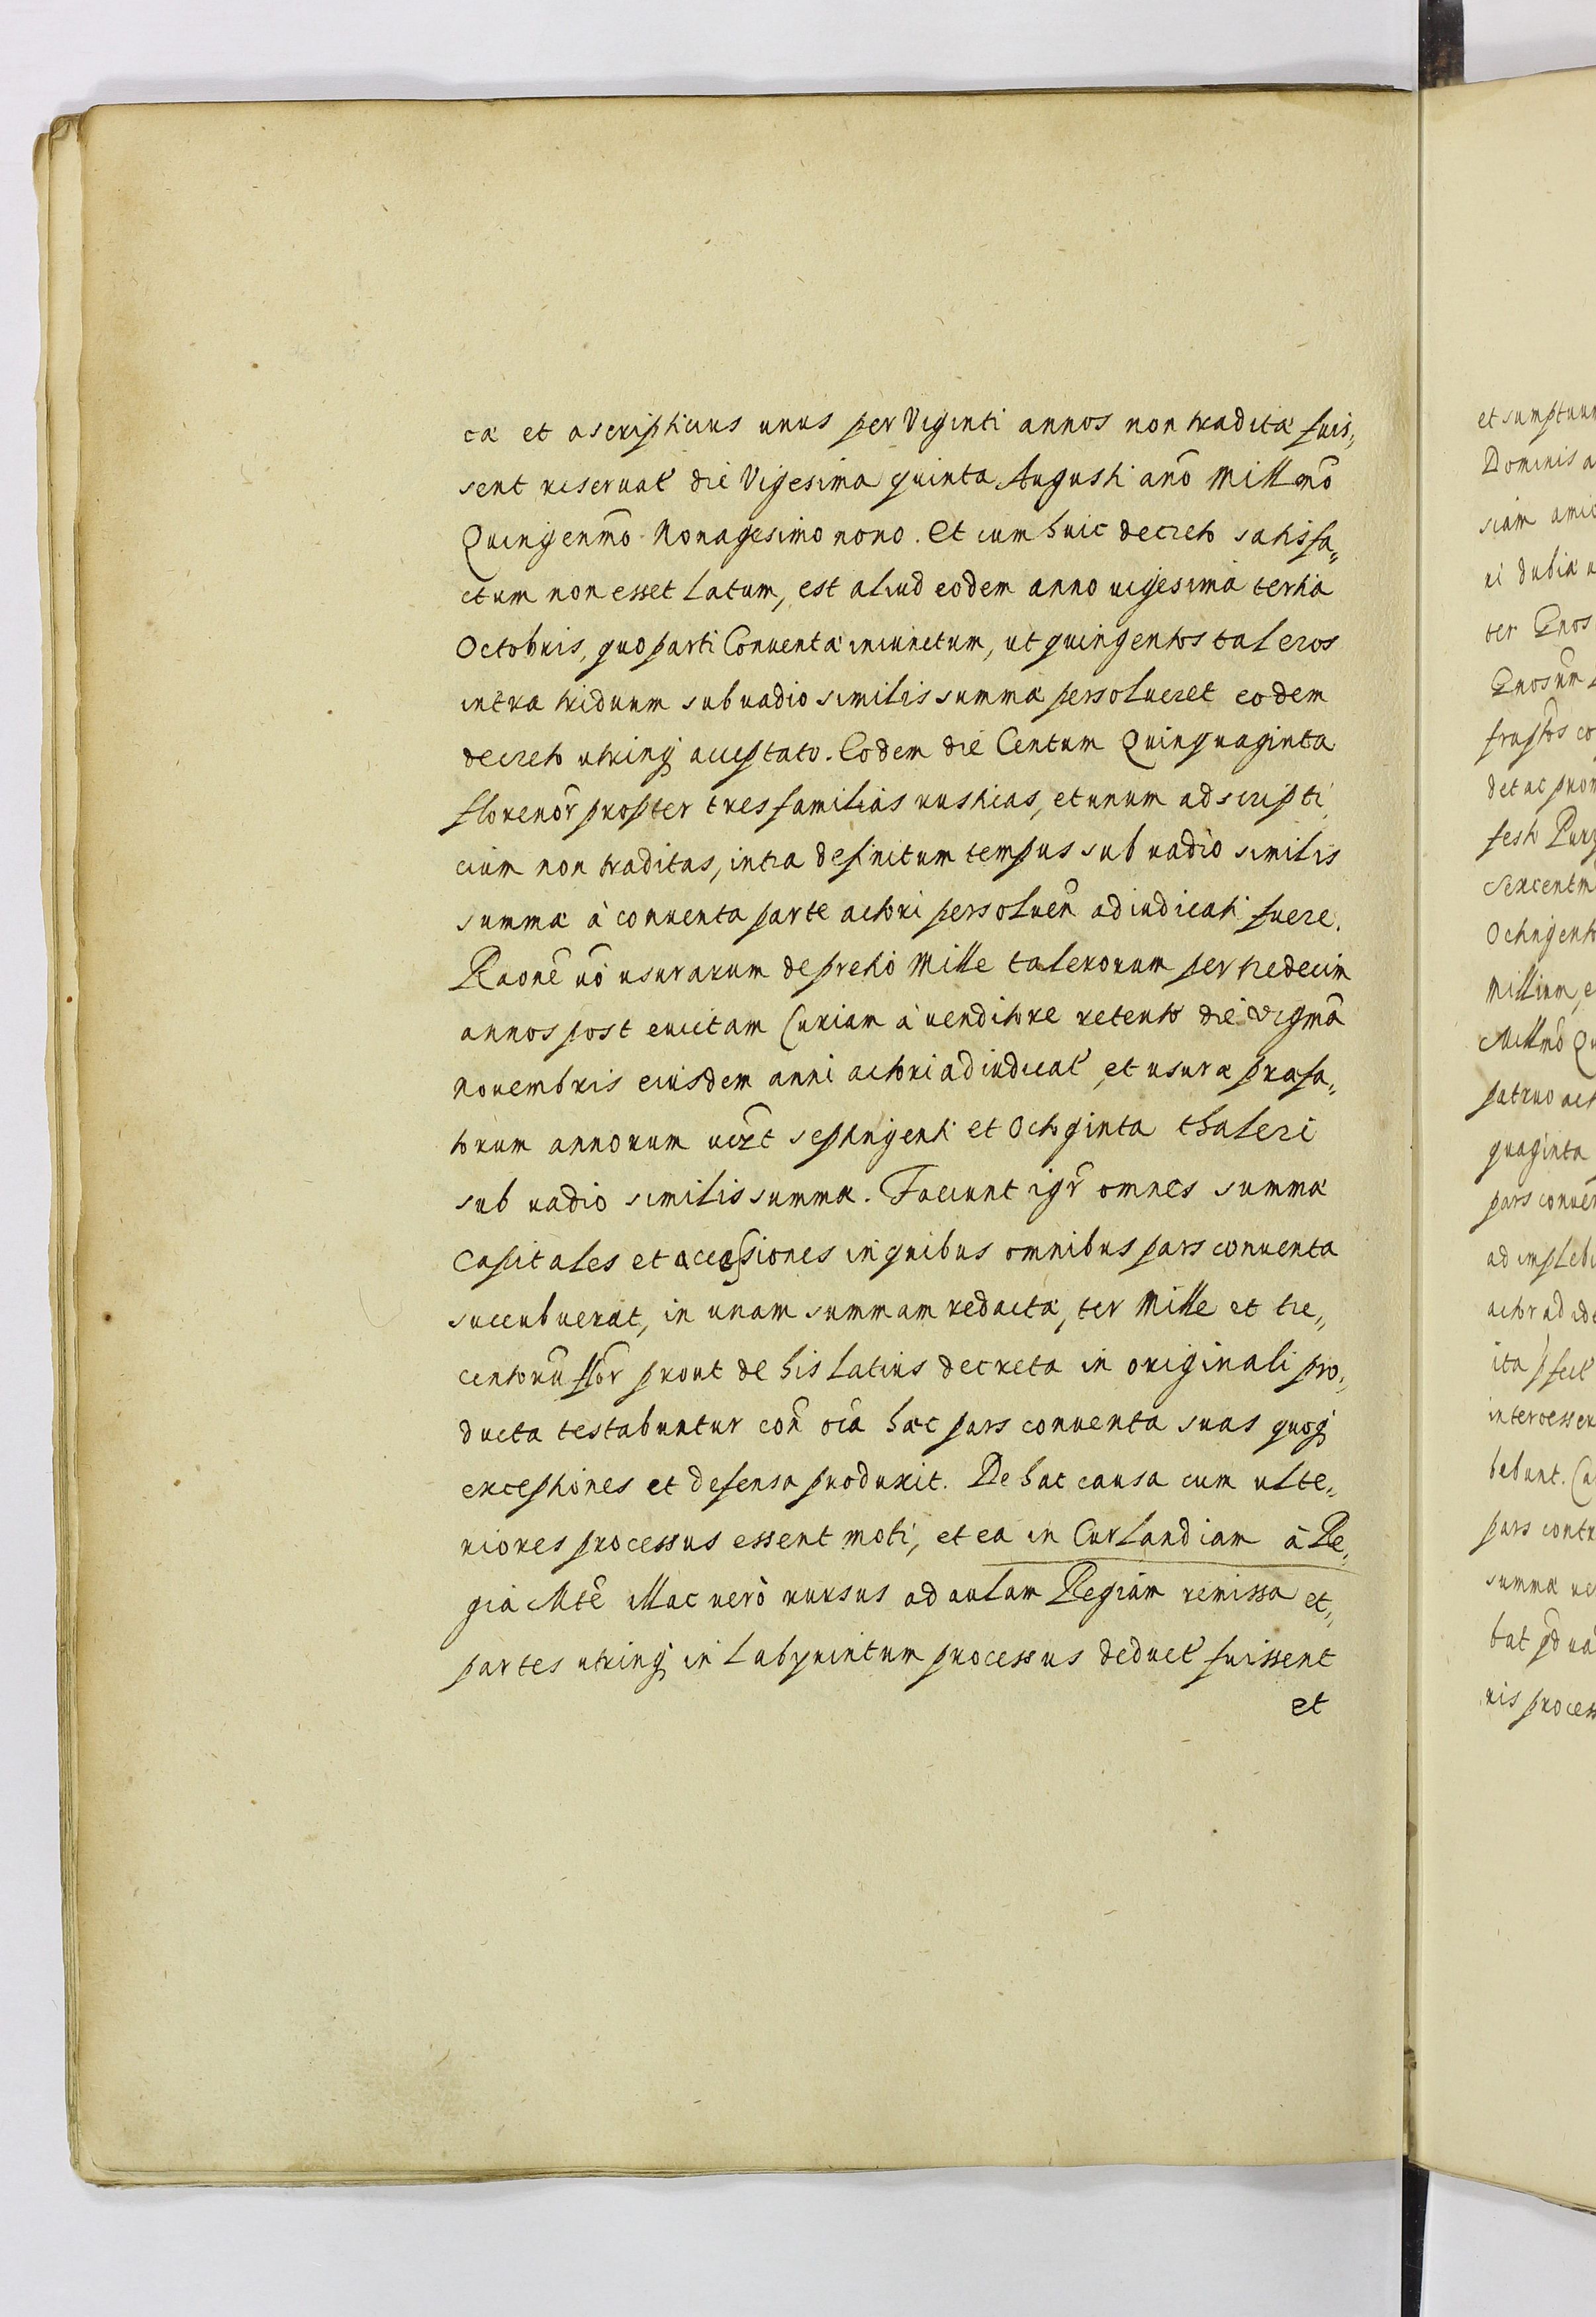 cæ et ascripticius unus per Viginti annos non traditæ fuis„
sent reservat' die Vigesima quinta Augusti año Millm̃o
Quingenm̃o Nonagesimo nono. Et cum huic decreto satisfa„
ctum non esset latum, est aliud eodem anno vigesima tertia
Octobris, quo parti Conventæ iniunctum, ut quingentos taleros
intra triduum sub vadio similis summæ persolveret eodem
decreto utrinq acceptato. Eodem die Centum Quinquaginta
florenor̃ propter tres familias rusticas, et unum adscripti„
cium non traditas, intra definitum tempus sub vadio similis
summæ à conventa parte actori persolueñ adiudicati fuere.
Raõne ṽo usurarum de pretio Mille talerorum per tredecim
annos post evictam Curiam à venditore retento die vigm̃a
novembris eiusdem anni actori adiudicat', et usuræ præfa„
torum annorum viz̃t septingenti et Octoginta thaleri
sub vadio similis summæ. Faciunt igr̃ omnes summæ
capitales et accessiones in quibus omnibus pars conventa
succubuerat, in unam summam redactæ, ter Mille et tre„
centorũ flor̃ prout de his latius decreta in originali pro„
ducta testabuntur con̄ oĩa hæc pars conventa suas quoq
exceptiones et defensa produxit. De hac causa cum ulte„
riores processus essent moti, et ea in Curlandiam à Re„
gia Mte͂ illac verò rursus ad aulam Regiam remissa et„
partes utrinq in labyrintum processus deduct' fuissent
et
et sumptuum
Dominis a
siam amic
ri dubiæ
ter Enos
Enosum̃
frustos co
det ac prom
festo Purg
Sexcentm
Octingento
Millium, e
Millm̃o Qu
patruo act
quaginta
pars conven
ad implebi
actor ad ide
ita pfect'
interessen
bebunt. Ca
pars contr
summæ ve
bat qd va
ris process